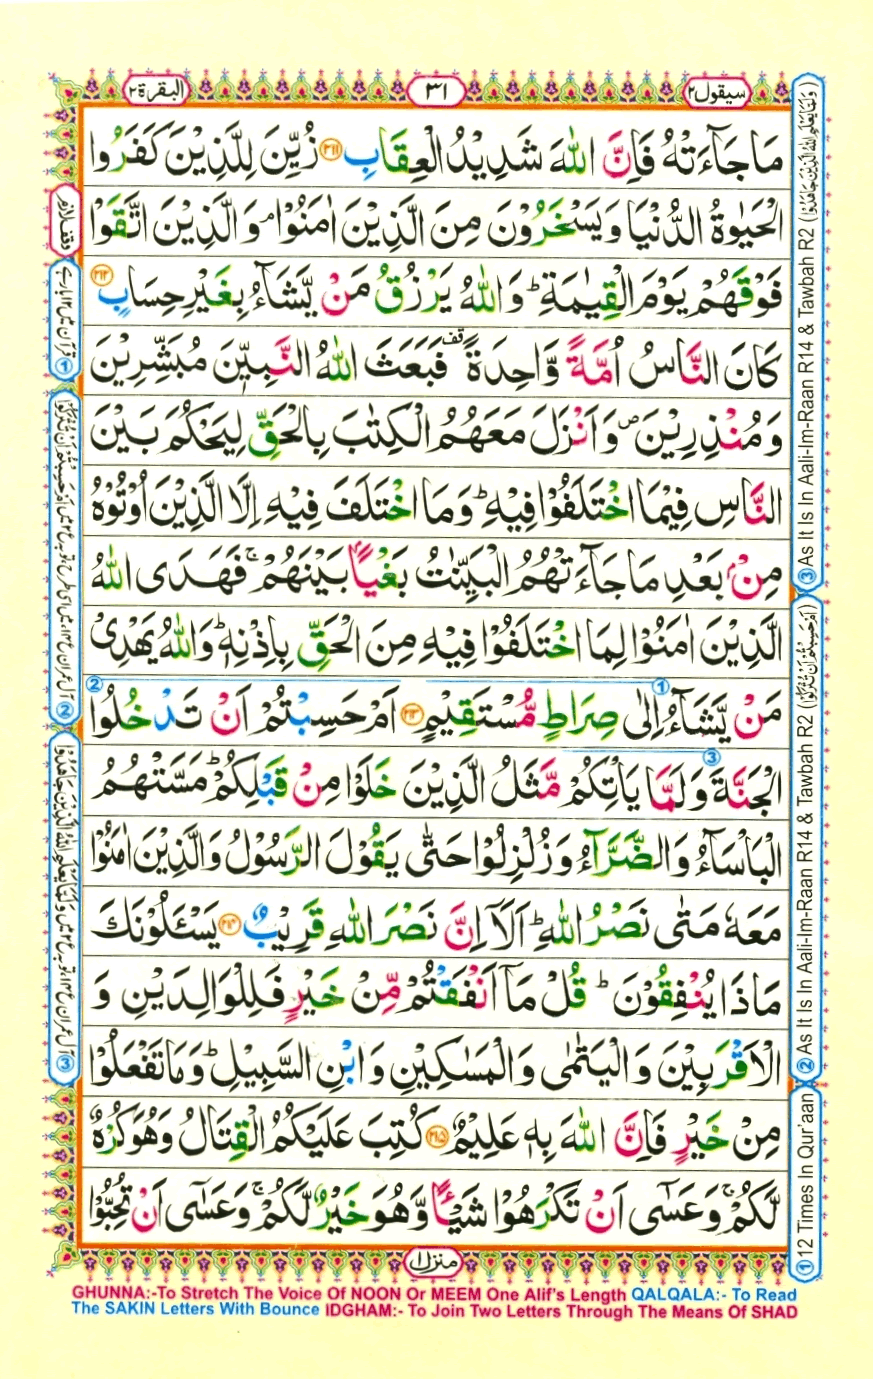 البقرة ٢
٣١
سيقول ٢
مَا جَآءَتْهُ فَاِنَّ اللّٰهَ شَدِيْدُ الْعِقَابِ ﴿۲۱۱﴾ زُيِّنَ لِلَّذِيْنَ كَفَرُوا
الْحَيٰوةُ الدُّنْيَا وَيَسْخَرُوْنَ مِنَ الَّذِيْنَ اٰمَنُوْا ۘ وَالَّذِيْنَ اتَّقَوْا
فَوْقَهُمْ يَوْمَ الْقِيٰمَةِ ؕ وَاللّٰهُ يَرْزُقُ مَنْ يَّشَآءُ بِغَيْرِ حِسَابٍ ﴿۲۱۲﴾
كَانَ النَّاسُ اُمَّةً وَّاحِدَةً قف فَبَعَثَ اللّٰهُ النَّبِيّٖنَ مُبَشِّرِيْنَ
وَمُنْذِرِيْنَ ص وَاَنْزَلَ مَعَهُمُ الْكِتٰبَ بِالْحَقِّ لِيَحْكُمَ بَيْنَ
النَّاسِ فِيْمَا اخْتَلَفُوْا فِيْهِ ؕ وَمَا اخْتَلَفَ فِيْهِ اِلَّا الَّذِيْنَ اُوْتُوْهُ
مِنْۢ بَعْدِ مَا جَآءَتْهُمُ الْبَيِّنٰتُ بَغْيًاۢ بَيْنَهُمْ ۚ فَهَدَى اللّٰهُ
الَّذِيْنَ اٰمَنُوْا لِمَا اخْتَلَفُوْا فِيْهِ مِنَ الْحَقِّ بِاِذْنِهٖ ؕ وَاللّٰهُ يَهْدِيْ
مَنْ يَّشَآءُ اِلٰى صِرَاطٍ مُّسْتَقِيْمٍ ﴿۲۱۳﴾ اَمْ حَسِبْتُمْ اَنْ تَدْخُلُوا
الْجَنَّةَ وَلَمَّا يَاْتِكُمْ مَّثَلُ الَّذِيْنَ خَلَوْا مِنْ قَبْلِكُمْ ؕ مَسَّتْهُمُ
الْبَاْسَآءُ وَالضَّرَّآءُ وَزُلْزِلُوْا حَتّٰى يَقُوْلَ الرَّسُوْلُ وَالَّذِيْنَ اٰمَنُوْا
مَعَهٗ مَتٰى نَصْرُ اللّٰهِ ؕ اَلَاۤ اِنَّ نَصْرَ اللّٰهِ قَرِيْبٌ ﴿۲۱۴﴾ يَسْـَٔلُوْنَكَ
مَاذَا يُنْفِقُوْنَ ؕ قُلْ مَاۤ اَنْفَقْتُمْ مِّنْ خَيْرٍ فَلِلْوَالِدَيْنِ وَ
الْاَقْرَبِيْنَ وَالْيَتٰمٰى وَالْمَسٰكِيْنِ وَابْنِ السَّبِيْلِ ؕ وَمَا تَفْعَلُوْا
مِنْ خَيْرٍ فَاِنَّ اللّٰهَ بِهٖ عَلِيْمٌ ﴿۲۱۵﴾ كُتِبَ عَلَيْكُمُ الْقِتَالُ وَهُوَ كُرْهٌ
لَّكُمْ ۚ وَعَسٰۤى اَنْ تَكْرَهُوْا شَيْـًٔا وَّهُوَ خَيْرٌ لَّكُمْ ۚ وَعَسٰۤى اَنْ تُحِبُّوْا
منزل ١
① 12 Times In Qur'aan
② As It Is In Aali-Im-Raan R14 & Tawbah R2
③ As It Is In Aali-Im-Raan R14 & Tawbah R2
GHUNNA:-To Stretch The Voice Of NOON Or MEEM One Alif's Length QALQALA:- To Read
The SAKIN Letters With Bounce IDGHAM:- To Join Two Letters Through The Means Of SHAD